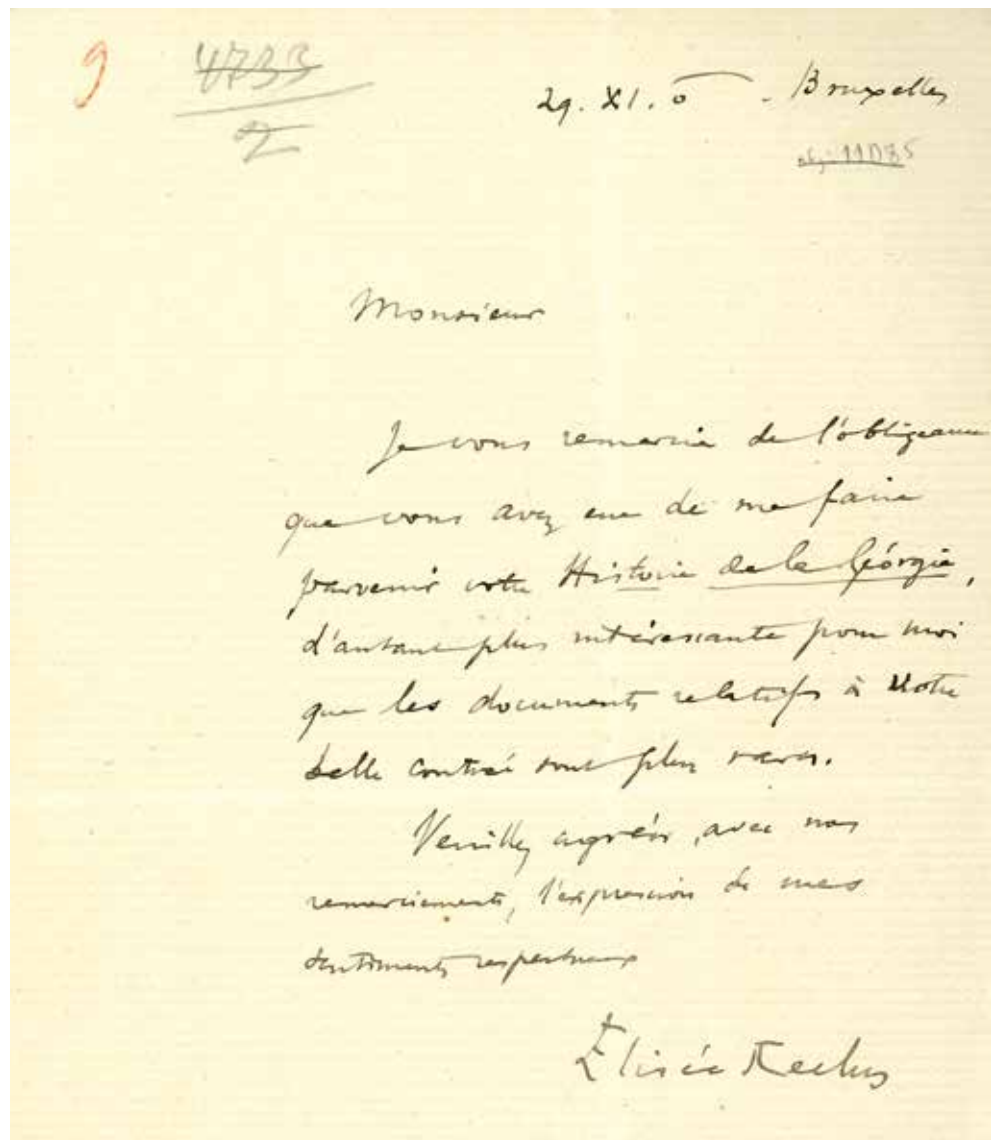 9
4733
2
29. XI. 0 - Bruxelles
11085
Monsieur
Je vous remercie de l'obligeance
que vous avez eue de me faire
parvenir votre Histoire de la Géorgie,
d'autant plus intéressante pour moi
que les documents relatifs à Votre
belle contrée sont plus rares.
Veuillez agréer, avec nos
remerciements, l'expression de mes
sentiments respectueux
Elisée Reclus